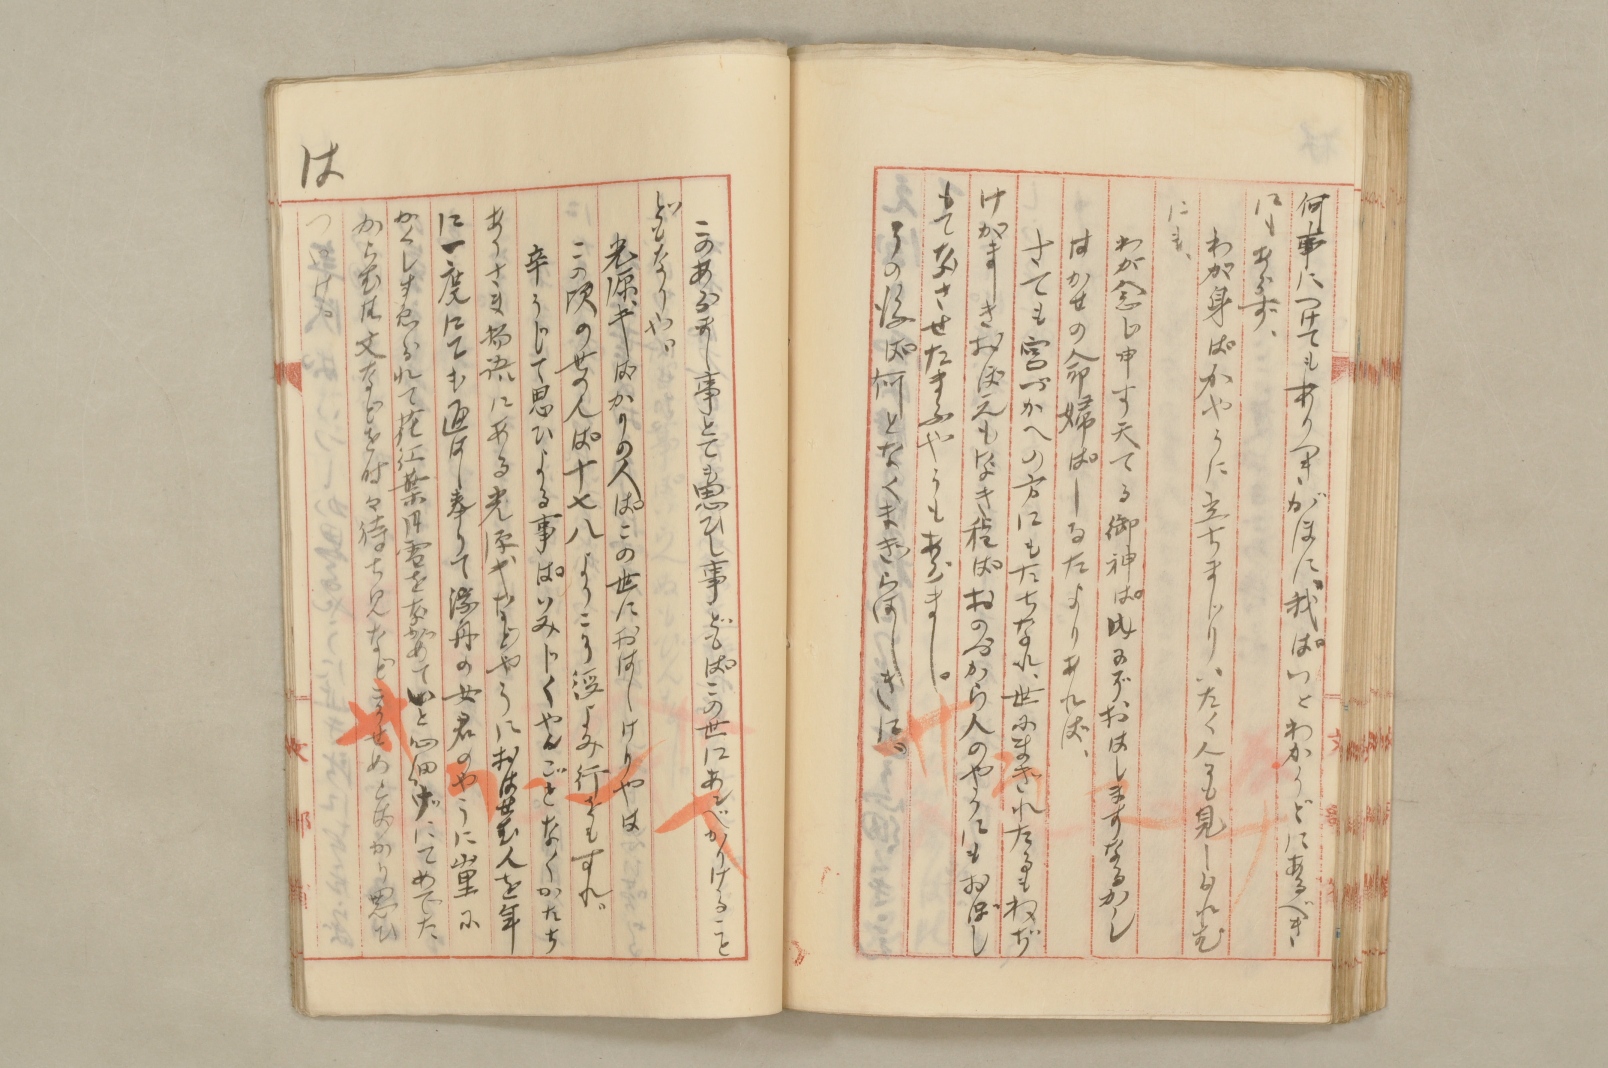 何事につけてもありつきがほに、我ぱいとわかうどにあるべき
にもあらず、
わが身ぱかやうに立ちまじり、いたく人にも見しられむ
にも、
わが念じ申す天てる御神ぱ内にぞおはしますなるかし
はかせの命婦ぱしるたよりあれば、
さても宮づかへの方にもたちなれ、世にまぎれたるもねぢ
けがましきおぼえもなき程ぱおのづから人のやうにもおぼし
もてなさせたまふやうもあらまし。
その後ぱ何となくまぎらはしきに。
は
このあらまし事とても思ひし事どもぱこの世にあんべかりけること
どもなりや。
光源氏ばかりの人ぱこの世におはしけりやは
この頃の世の人ぱ十七八よりこそ経よみ行ひもすれ。
辛うじて思ひよる事ぱいみじくやんごとなくかたち
ありさま物語にある光源氏などやうにおはせむ人を年
に一度にても通はし奉りて浮舟の女君のやうに山里に
かくしすゑられて花紅葉月雪をながめていと心細げにてめでた
からむ御文などを時々待ち見などこそせめとばかり思ひ
つゞけ